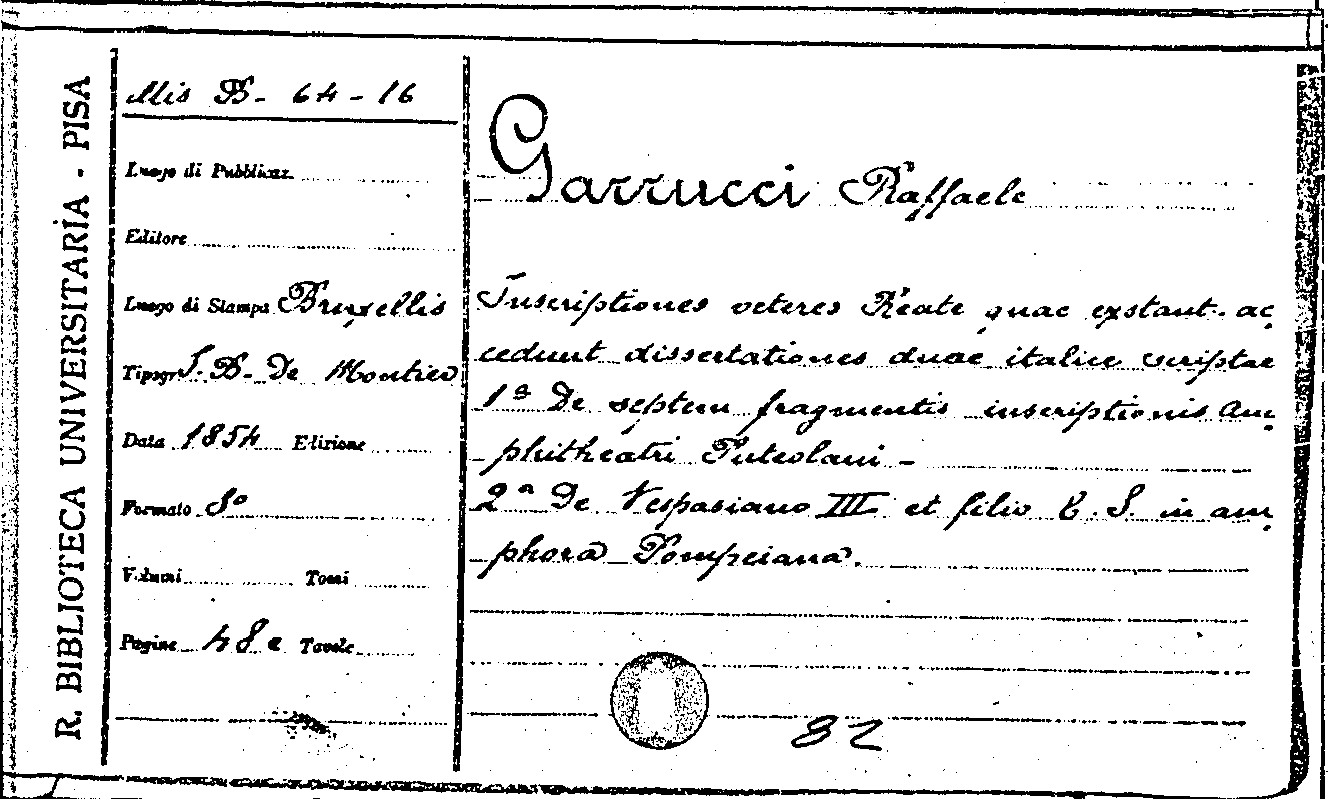 R. BIBLIOTECA UNIVERSITARIA - PISA
Mis B- 64-16
Luogo di Pubblicaz.
Editore
Luogo di Stampa Bruxellis
Tipogr. J. B. De Mortier
Data 1854 Edizione
Formato 8°
Volumi Tomi
Pagine 48 e Tavole
Garrucci Raffaele
Inscriptiones veteres Reate quae exstant. ac
cedunt dissertationes duae italice scriptae
1ª De septem fragmentis inscriptionis Am
phitheatri Puteolani -
2ª De Vespasiano III et filio C. S. in am
phora Pompeiana.
82